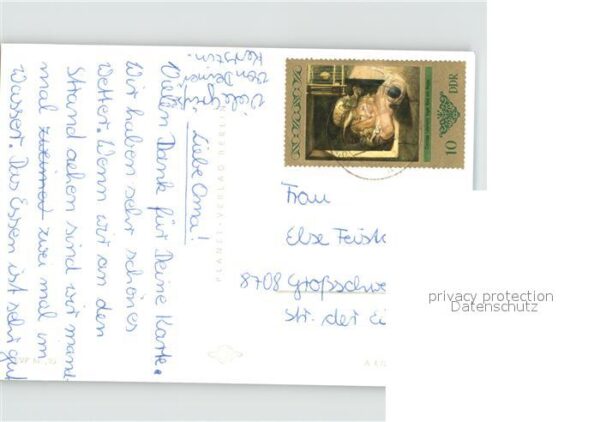 Liebe Oma!
Vielen Dank für Deine Karte.
Wir haben sehr schönes
Wetter. Wenn wir an den
Strand gehen sind wir manch
mal zweimal zwei mal im
Wasser. Das Essen ist sehr gut
Viele Grüße
von Deiner
Kerstin.
DDR
10
Frau
Else Feist
8708 Großschwe
Str. der Ei
privacy protection
Datenschutz